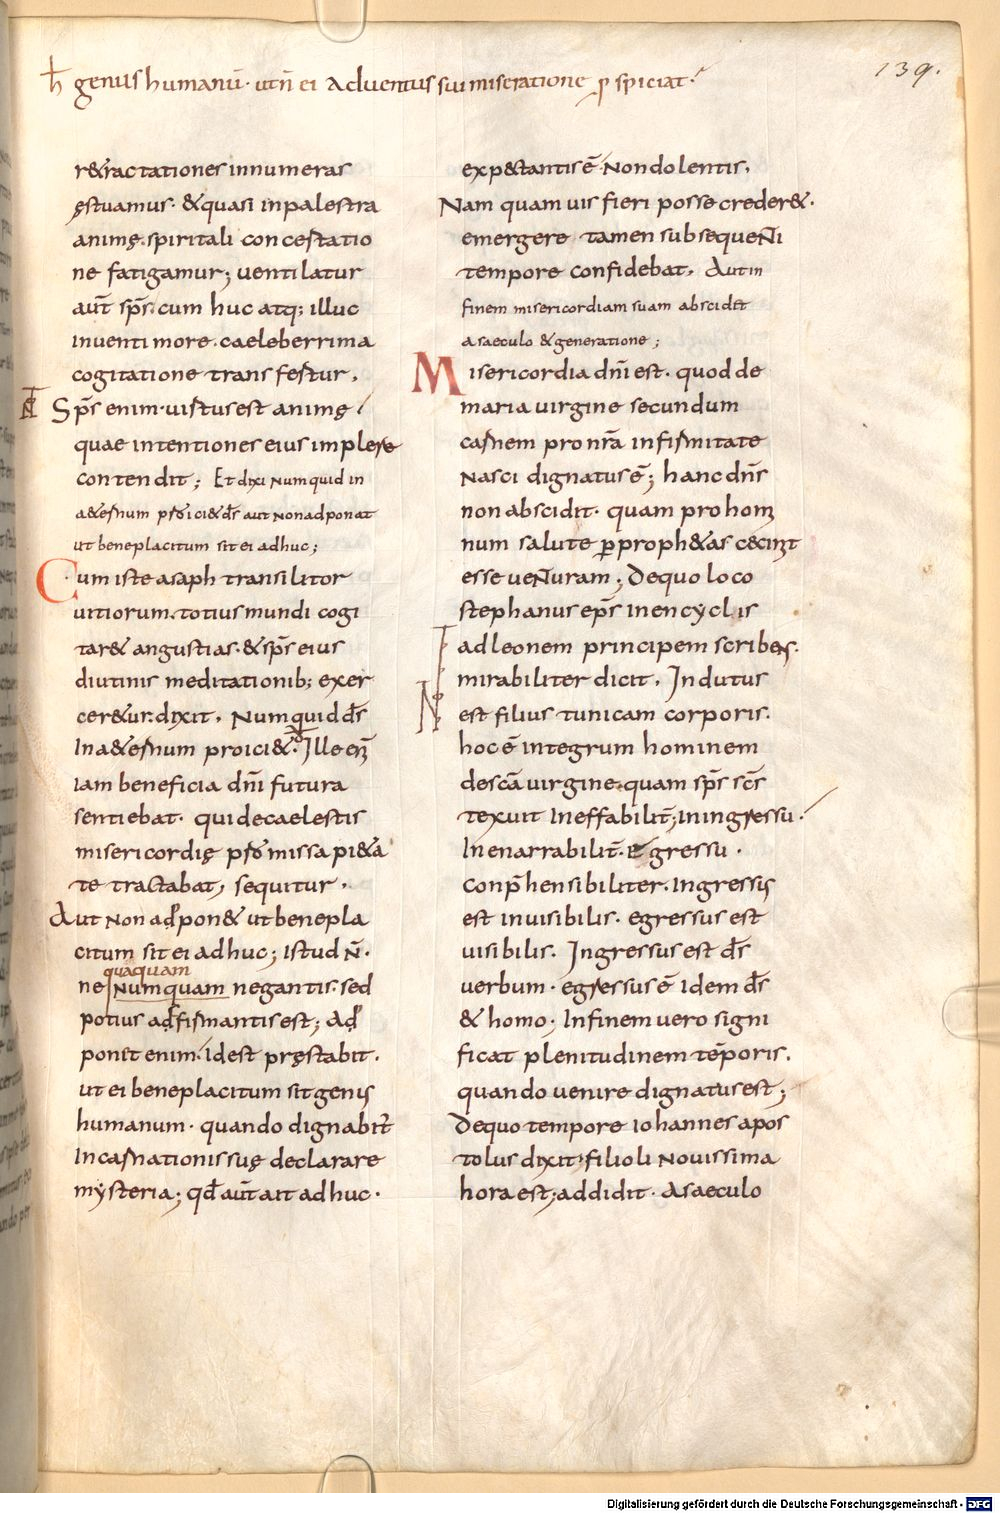 ħ genus humanū· utn̄ ei adventus sui miseratione ꝑspiciat·
139.
r&ractationes innumeras
ęstuamus· & quasi inpalestra
animę spiritali concertatio
ne fatigamur; ventilatur
aut̄ sp̄s cum huc atq; illuc
inventi more· caeleberrima
cogitatione transfertur,
Sp̄s enim· uirtus est animę
quae intentiones eius implere
contendit; Et dixi Numquid in
a&ernum proici& d̄s aut non adponat
ut beneplacitum sit ei adhuc;
Cum iste asaph transilitor
uitiorum· totius mundi cogi
tar& angustias· & sp̄s eius
diutinis meditationib; exer
cer&ur· dixit, Numquid d̄s
in a&ernum proici&· Ille em̄
iam beneficia dn̄i futura
sentiebat· qui de caelestis
misericordię promissa pi&a
te tractabat, sequitur,
Aut non adpon& ut benepla
citum sit ei adhuc; istud n̄·
quāquam
ne Numquam negantis· sed
potius adfirmantis est; Ad
ponit enim· idest pręstabit·
ut ei beneplacitum sit genus
humanum· quando dignabit̄
Incarnationis suę declarare
mysteria; qd̄ aut̄ ait adhuc·
exp&tantis ē Non dolentis,
Nam quam uis fieri posse creder&·
emergere tamen subsequeNti
tempore confidebat, Aut in
finem misericordiam suam abscidet
a saeculo & generatione;
Misericordia dn̄i est· quod de
maria uirgine secundum
carnem pro nr̄a infirmitate
Nasci dignatus ē; hanc dn̄s
non abscidit· quam pro homi
num salute ꝑ proph&as cecinit
esse ueNturam; De quo loco
stephanus ep̄s in encyclis
ad leonem principem scribens·
mirabiliter dicit, Indutus
est filius tunicam corporis·
hoc ē integrum hominem
de sc̄a uirgine· quam sp̄s sc̄s
texuit Ineffabilit̄; Iningressu·
Inenarrabilit̄· Egressu·
Conp̄hensibiliter· Ingressus
est inuisibilis· egressus est
uisibilis· Ingressus est d̄s
uerbum· egressus ē idem d̄s
& homo; Infinem uero signi
ficat plenitudinem tēporis,
quando uenire dignatus est;
De quo tempore iohannes apos
tolus dixit· filioli Novissima
hora est; addidit· A saeculo
Digitalisierung gefördert durch die Deutsche Forschungsgemeinschaft - DFG